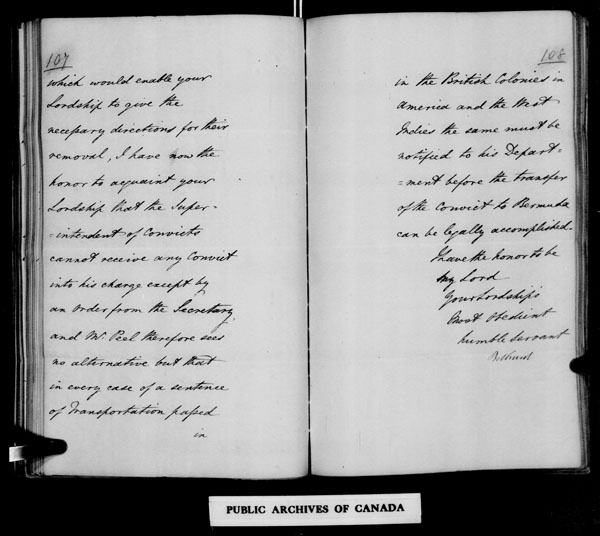 107
which would enable your
Lordship to give the
necessary directions for their
removal, I have now the
honor to acquaint your
Lordship that the Super-
=intendent of Convicts
cannot receive any Convict
into his charge except by
an order from the Secretary,
and Mr Peel therefore sees
no alternative but that
in every case of a sentence
of Transportation passed
in
108
in the British Colonies in
America and the West
Indies the same must be
notified to his Depart=
=ment before the transfer
of the Convict to Bermuda
can be legally accomplished.
I have the honor to be
My Lord
Your Lordship's
Most Obedient
humble Servant
PUBLIC ARCHIVES OF CANADA